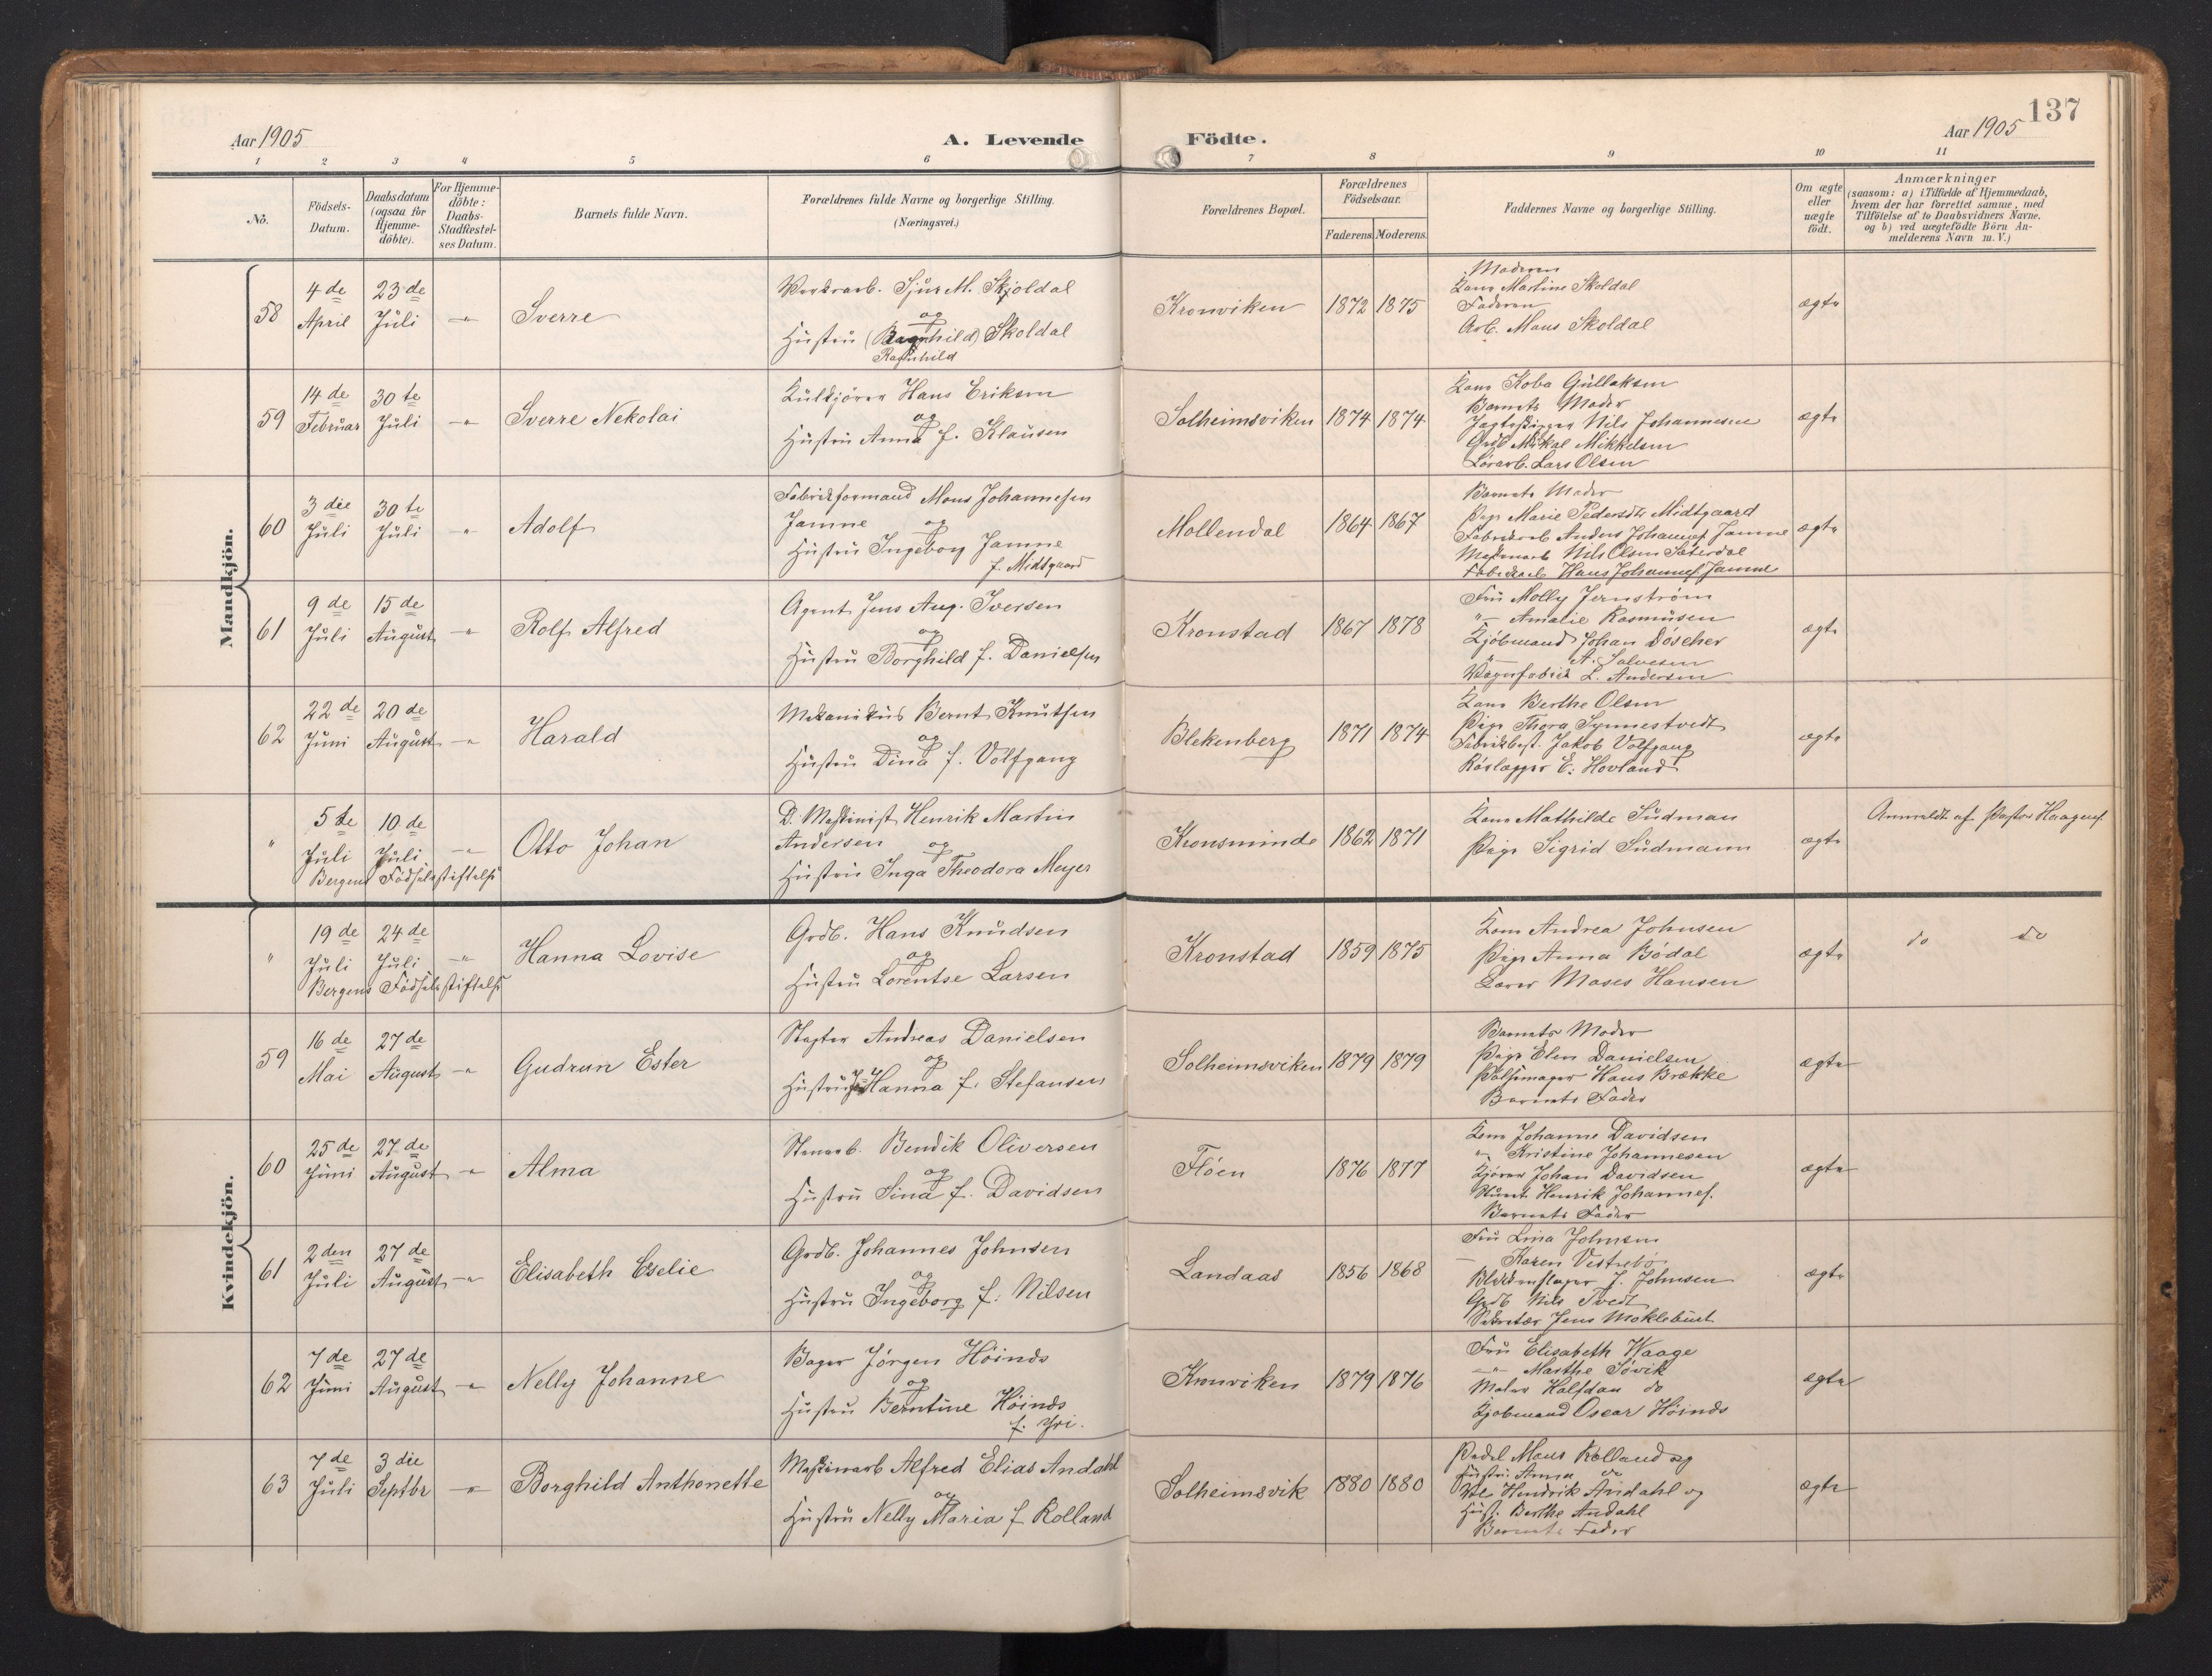 137
Aar 1905
A. Levende
Födte.
Aar 1905
1 2 3 4 5 6 7 8 9 10 11
No.
Födsels-
Datum.
Daabsdatum
(ogsaa for
Hjemme-
döbte).
For Hjemme-
döbte:
Daabs-
Stadfæstel-
ses Datum.
Barnets fulde Navn.
Forældrenes fulde Navne og borgerlige Stilling.
(Næringsvei.)
Forældrenes Bopæl.
Forældrenes
Födselsaar.
Faderens. Moderens.
Faddernes Navne og borgerlige Stilling.
Om ægte
eller
uægte
födt.
Anmærkninger
(saasom: a) i Tilfælde af Hjemmedaab,
hvem der har forrettet samme, med
Tilföielse af to Daabsvidners Navne.
og b) ved uægtefödte Börn An-
melderens Navn m. V.)
Mandkjön.
58
4 de
April
23 de
Juli
-"-
Sverre
Sjur M. Skjoldal
og
Hustru (Bagnhild) Skoldal
Ragnhild
Kronviken
1872 1875
Moderen
Kone Martine Skoldal
Faderen
Arb. Mons Skoldal
ægte
59
14 de
Februar
30 te
Juli
-"-
Sverre Nekolai
Kulkjører Hans Eriksen
og
Hustru Anna f. Klausen
Solheimsviken
1874 1874
Kone Koba Gullaksen
Barnets Moder
Nils Johannesen
Grdb Mikal Mikkelsen
Lars Olsen
ægte
60
3 die
Juli
30 te
Juli
"
Adolf
Fabrikformand Mons Johannesen
Jamne og
Hustru Ingeborg Jamne
f. Midtgaard
Mollendal
1864 1867
Barnets Moder
Pige Marie Pedersdtr Midtgaard
Fabrikarb Anders Johannes Jamne
Nils Olsen Säterdal
Fabrikarb Hans Johannes. Jamne
ægte
61
9 de
Juli
15 de
August
-"-
Rolf Alfred
Agent Jens Aug. Iversen
og
Hustru Borghild f. Danielsen
Kronstad
1867 1878
Fru Molly Jernström
-"- Amalie Rasmusen
Kjöbmand Johan Döscher
-"- A. Salvesen
L. Andersen
ægte
62
22 de
Juni
20 de
August
-"-
Harald
Mekanikus Bernt Knutsen
og
Hustru Dina f. Volfgang
Blekenberg
1871 1874
Kone Berthe Olsen
Pige Thora Synnestvedt
Fabrikbest. Jakob Volfgang
Rörlægger E. Hovland
ægte
"
5 te
Juli
10 de
Juli
-"-
Bergens Födselsstiftelse
Otto Johan
D. Maskinist Henrik Martin
Andersen og
Hustru Inga Theodora Meyer
Kronsminde
1862 1871
Kone Mathilde Sudman
Pige Sigrid Sudmann
ægte
Anmeldt af Pastor Haagens.
Kvindekjön.
"
19 de
Juli
24 de
Juli
-"-
Bergens Födselsstiftelse
Hanna Lovise
Grdb. Hans Knudsen
og
Hustru Lorentse Larsen
Kronstad
1859 1875
Kone Andrea Johnsen
Pige Anna Bödal
Lærer Moses Hansen
ægte
do do
59
16 de
Mai
27 de
August
-"-
Gudrun Ester
Slagter Andreas Danielsen
og
Hustru Hanna f. Stefansen
Solheimsviken
1879 1879
Barnets Moder
Pige Elen Danielsen
Pölsemager Hans Brække
Barnets Fader
ægte
60
25 de
Juni
27 de
August
-"-
Alma
Stenarb. Bendik Oliversen
og
Hustru Sina f. Davidsen
Flöen
1876 1877
Kone Johanne Davidsen
-"- Kristine Johannesen
Kjörer Johan Davidsen
Henrik Johannes.
Barnets Fader
ægte
61
2 den
Juli
27 de
August
-"-
Elisabeth Eselie
Grdb. Johannes Johnsen
og
Hustru Ingeborg f. Nilsen
Landaas
1856 1868
Fru Lina Johnsen
— Karen Vestrebö
Blikkenslager J. Johnsen
Grdb Nils Tvedt
Sekretær Jens Moklebust
ægte
62
7 de
Juni
27 de
August
-"-
Nelly Johanne
Bager Jörgen Höinds
og
Hustru Berntine Höinds
f. Yri.
Kronviken
1879 1876
Fru Elisabeth Waage
-"- Marthe Sövik
Maler Halfdan do
Kjöbmand Oscar Höinds
ægte
63
7 de
Juli
3 die
Septbr
-"-
Borghild Anthonette
Maskinarb Alfred Elias Andahl
og
Hustru Nelly Maria f Rolland
Solheimsvik
1880 1880
Mons Rolland og
Hustru Anna do
Hendrik Andahl og
Hust. Berthe Andahl
Barnets Fader
ægte